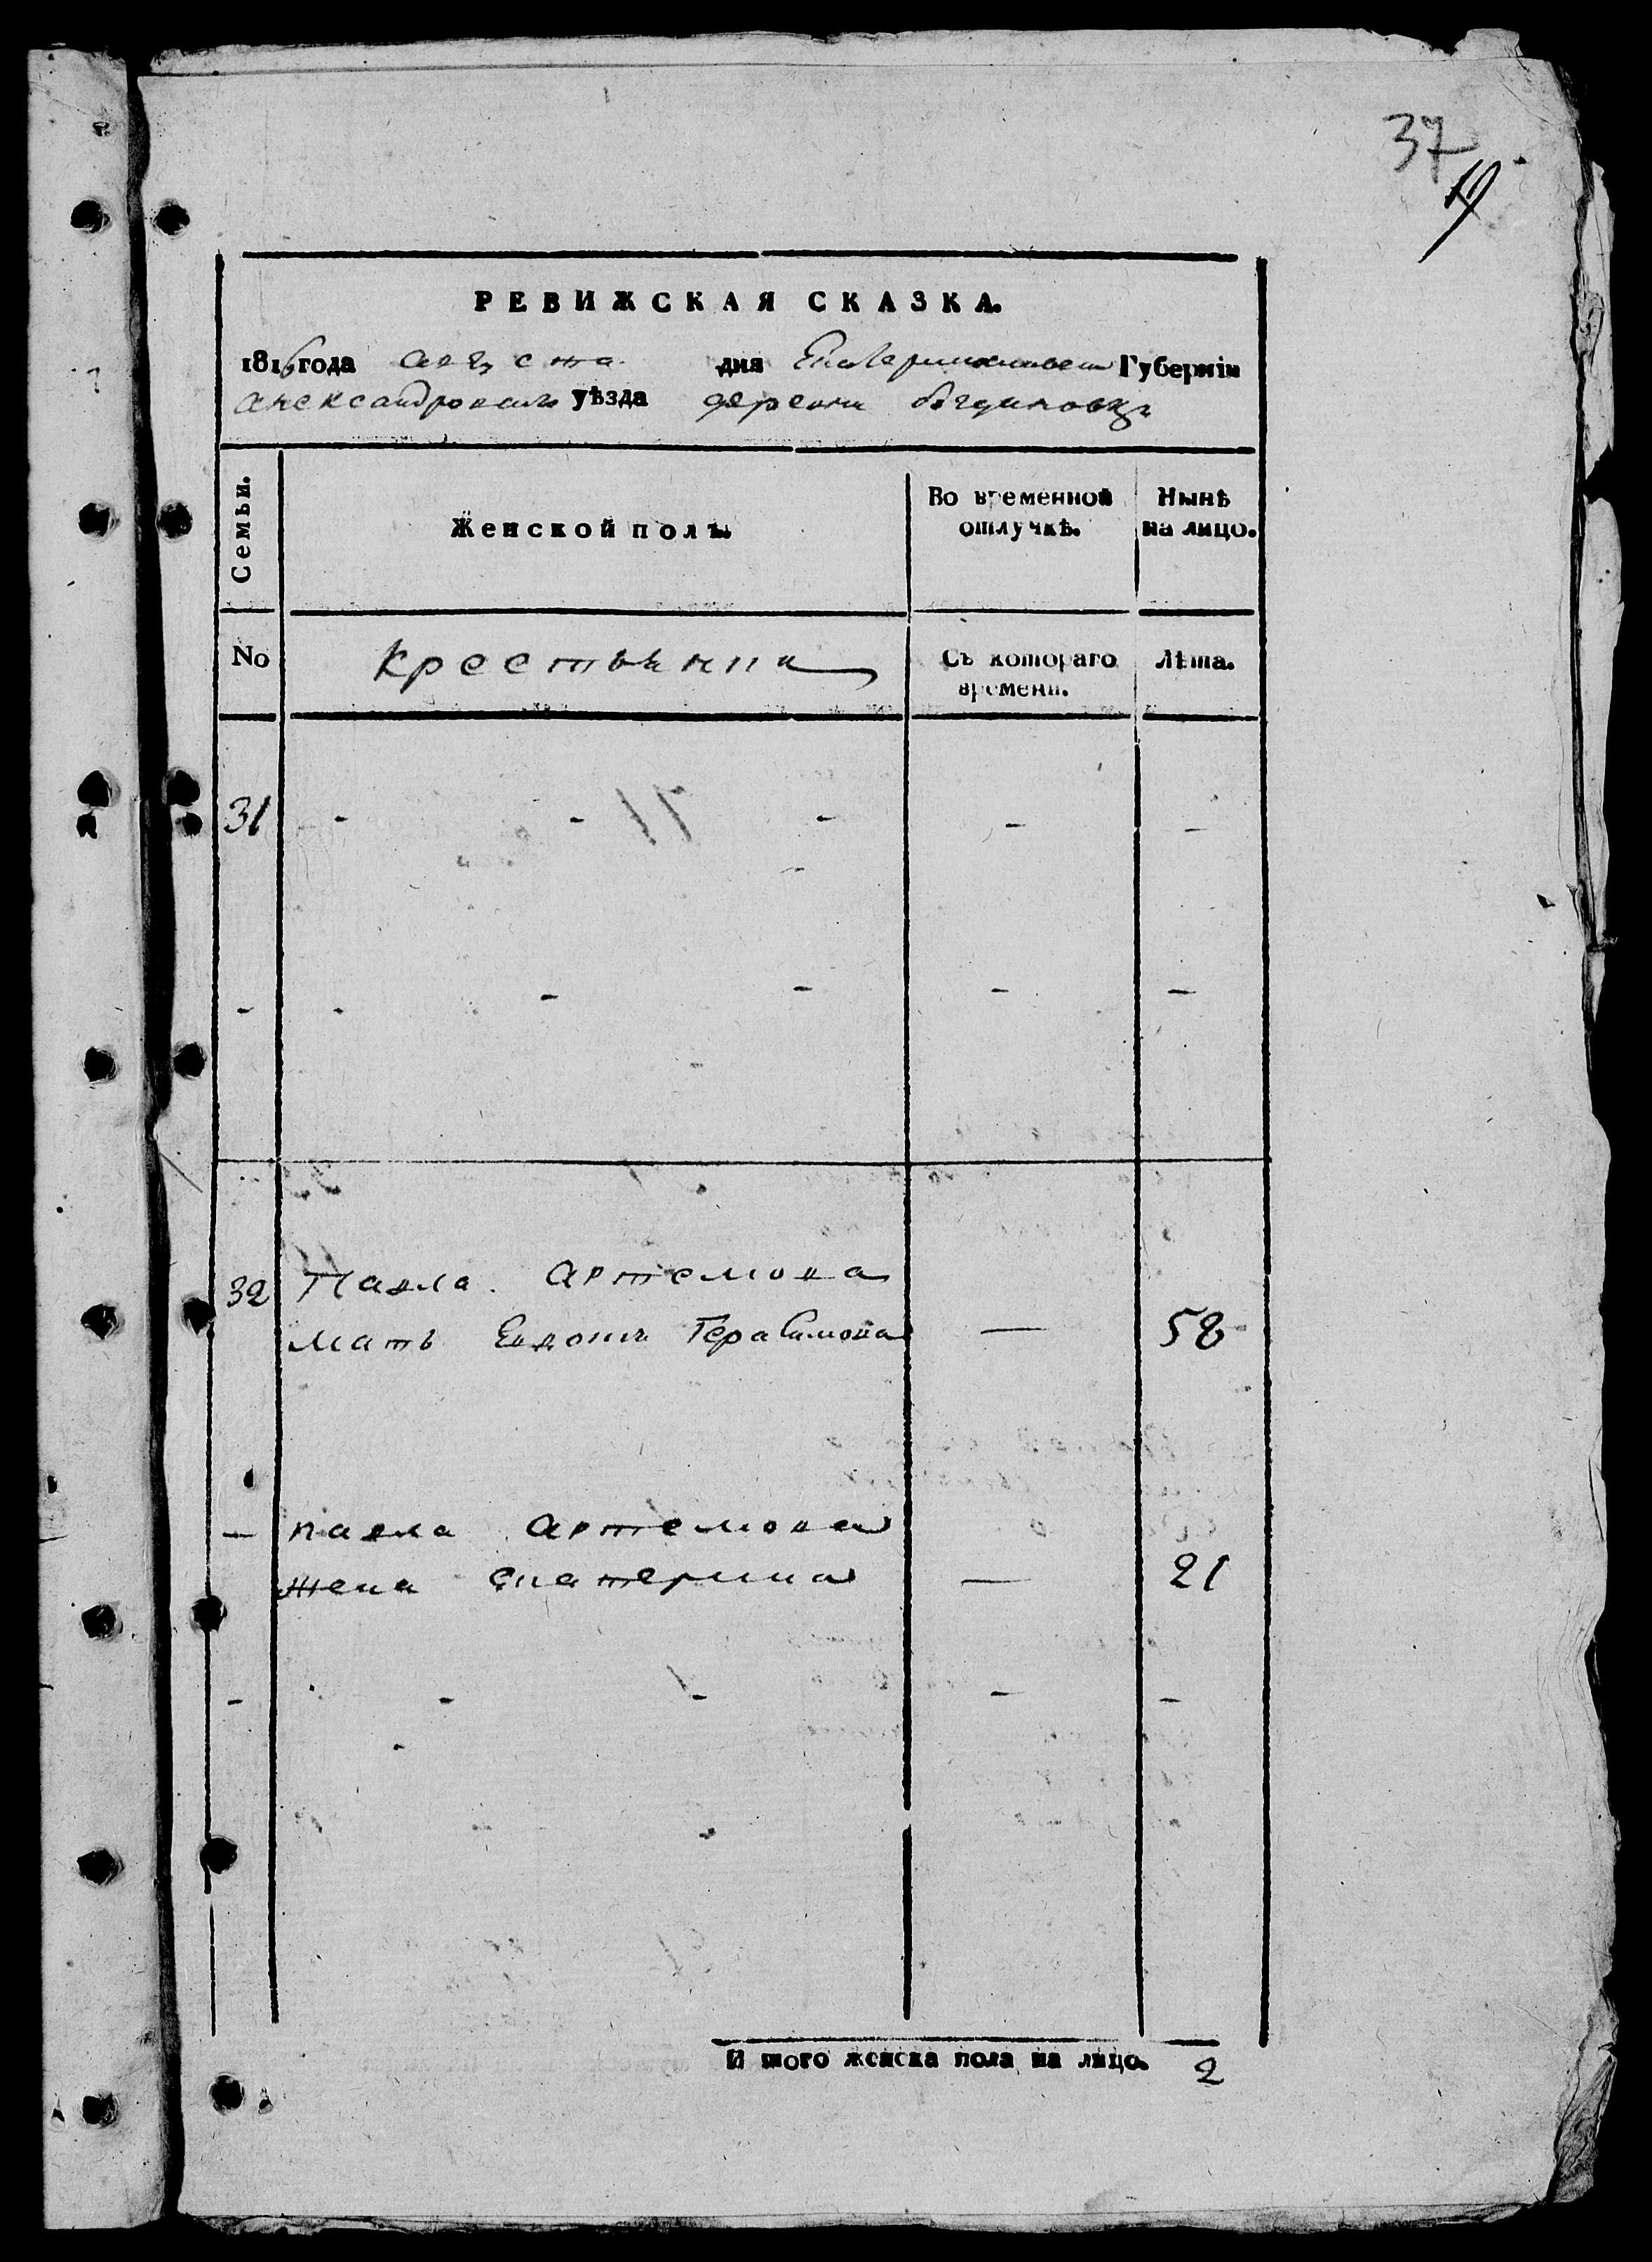 37
19
РЕВИЖСКАЯ СКАЗКА.
1816 года августа дня Екатеринославской Губернiи
Александровскаго уѣзда деревни
Семьи.
Женской полъ.
Во временной отлучкѣ.
Нынѣ на лицо.
No
крестьянна
Съ котораго времени.
Лѣта.
31 - - - - -
- - - - - -
32 Павла Артемова
мать Евдокия Герасимова — 58
— павла Артемова
жена Екатерина — 21
- - - - -
И того женска пола на лицо. 2